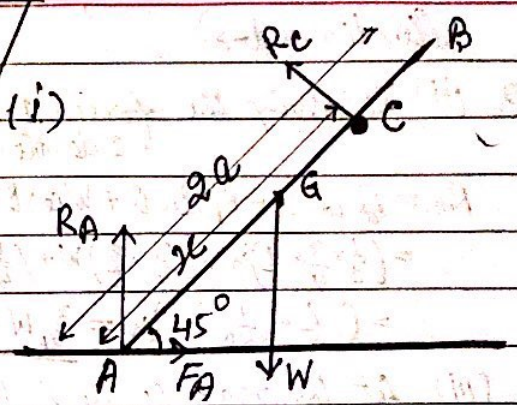 (i)
Rc
B
C
2a
x
G
RA
45°
A
FA
W